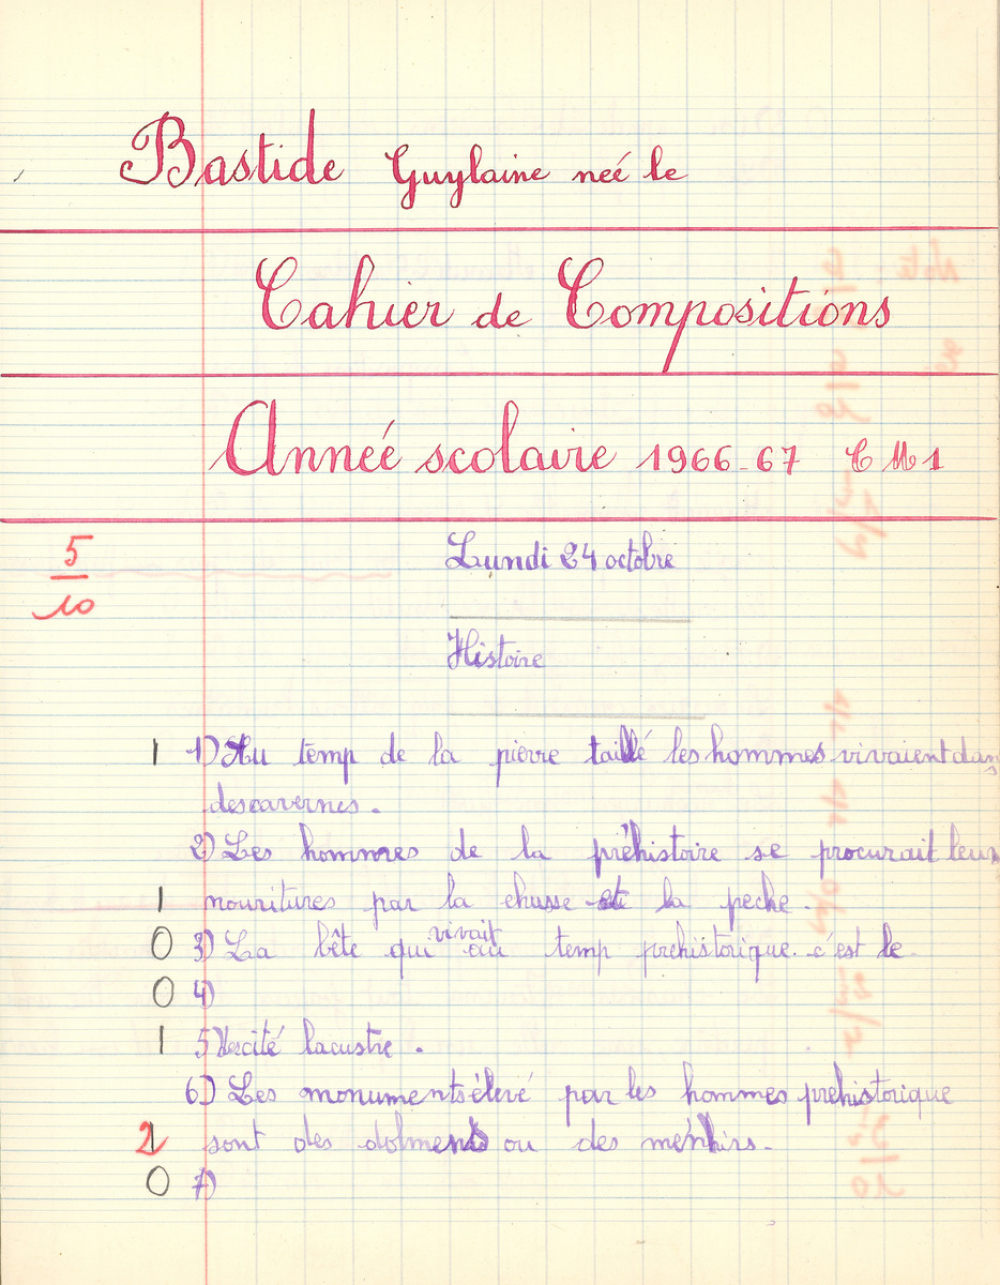 Bastide Guylaine neé le
Cahier de Compositions
Anneé scolaire 1966-67 CM1
5/10
Lundi 24 octobre
Histoire
1 1) Au temp de la pierre taillé les hommes vivaient dans
des cavernes.
2) Les hommes de la préhistoire se procurait leurs
1 nouritures par la chasse et la peche.
0 3) La bête qui vivait au temp prehistorique. c'est le
0 4)
1 5) cité lacustre.
6) Les monuments élevé par les hommes prehistorique
2 sont des dolmens ou des menhirs.
0 7)